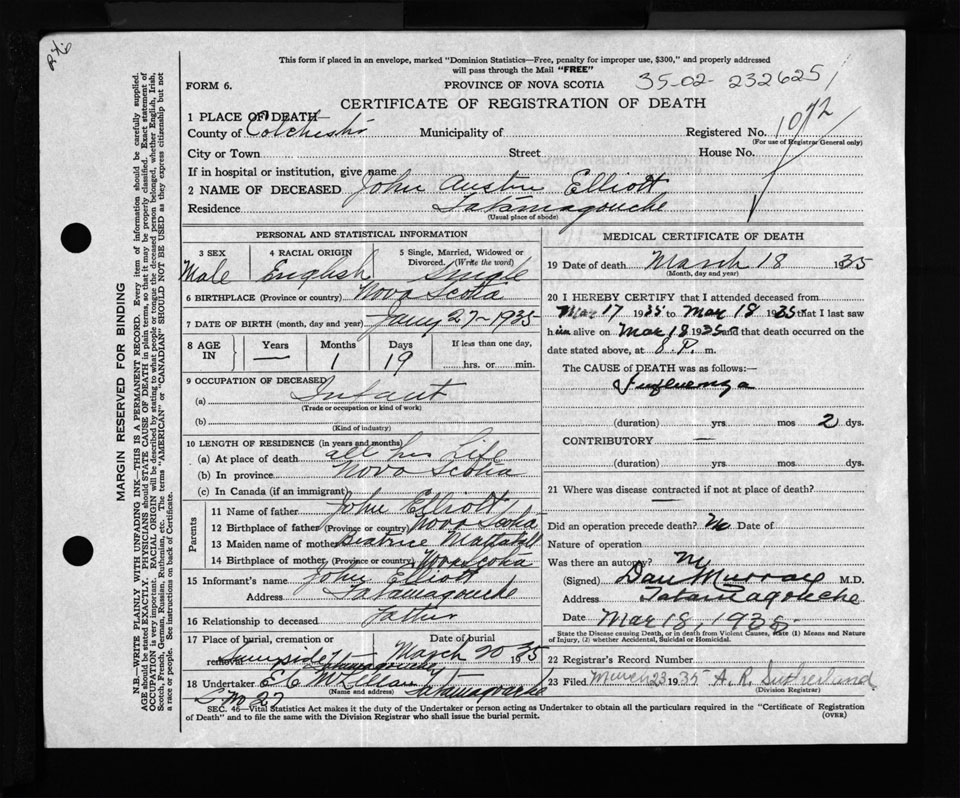 This form if placed in an envelope, marked "Dominion Statistics—Free, penalty for improper use, $300," and properly addressed
will pass through the Mail "FREE"
FORM 6.
PROVINCE OF NOVA SCOTIA
35-02-232625
CERTIFICATE OF REGISTRATION OF DEATH
1 PLACE OF DEATH
County of Colchester Municipality of Registered No. 1072
(For use of Registrar General only)
City or Town Street House No.
If in hospital or institution, give name
2 NAME OF DECEASED John Austin Elliott
Residence Tatamagouche
(Usual place of abode)
PERSONAL AND STATISTICAL INFORMATION
3 SEX 4 RACIAL ORIGIN 5 Single, Married, Widowed or
Divorced. (Write the word)
Male English Single
6 BIRTHPLACE (Province or country) Nova Scotia
7 DATE OF BIRTH (month, day and year) Jany 27-1935
8 AGE IN Years Months Days If less than one day,
— 1 19 hrs. or min.
9 OCCUPATION OF DECEASED
(a) Infant
(Trade or occupation or kind of work)
(b)
(Kind of industry)
10 LENGTH OF RESIDENCE (in years and months)
(a) At place of death all his Life
(b) In province Nova Scotia
(c) In Canada (if an immigrant)
Parents
11 Name of father John Elliott
12 Birthplace of father (Province or country) Nova Scotia
13 Maiden name of mother Beatrice Mattatall
14 Birthplace of mother (Province or country) Nova Scotia
15 Informant's name John Elliott
Address Tatamagouche
16 Relationship to deceased Father
17 Place of burial, cremation or removal Date of burial
Tatamagouche March 20 1935
18 Undertaker E C McLellan Tatamagouche
(Name and address)
MEDICAL CERTIFICATE OF DEATH
19 Date of death March 18 1935
(Month, day and year)
20 I HEREBY CERTIFY that I attended deceased from
Mar 17 1935 to Mar 18 1935 that I last saw
him alive on Mar 18 1935 and that death occurred on
date stated above, at 8 P. m.
The CAUSE of DEATH was as follows:—
Influenza
(duration) yrs mos 2 dys.
CONTRIBUTORY —
(duration) yrs. mos dys.
21 Where was disease contracted if not at place of death?
—
Did an operation precede death? No Date of
Nature of operation
Was there an autopsy? No
(Signed) Dan Murray M.D.
Address Tatamagouche
Date Mar 18, 1935
State the Disease causing Death, or in death from Violent Causes, state (1) Means and Nature
of Injury, (2) whether Accidental, Suicidal or Homicidal.
22 Registrar's Record Number
23 Filed March 23 1935 A. R. Sutherland
(Division Registrar)
SEC. 46—Vital Statistics Act makes it the duty of the Undertaker or person acting as Undertaker to obtain all the particulars required in the "Certificate of Registration
of Death" and to file the same with the Division Registrar who shall issue the burial permit.
(OVER)
MARGIN RESERVED FOR BINDING
N.B.—WRITE PLAINLY WITH UNFADING INK—THIS IS A PERMANENT RECORD. Every item of information should be carefully supplied.
AGE should be stated EXACTLY. PHYSICIANS should STATE CAUSE OF DEATH in plain terms, so that it may be properly classified. Exact statement of
OCCUPATION is very important. RACIAL ORIGIN will be described by stating to what people or tongue the deceased person belonged, whether English, Irish,
Scotch, French, German, Russian, Ruthenian, etc. The terms "AMERICAN" or "CANADIAN" SHOULD NOT BE USED as they express citizenship but not
a race or people. See instructions on back of Certificate.